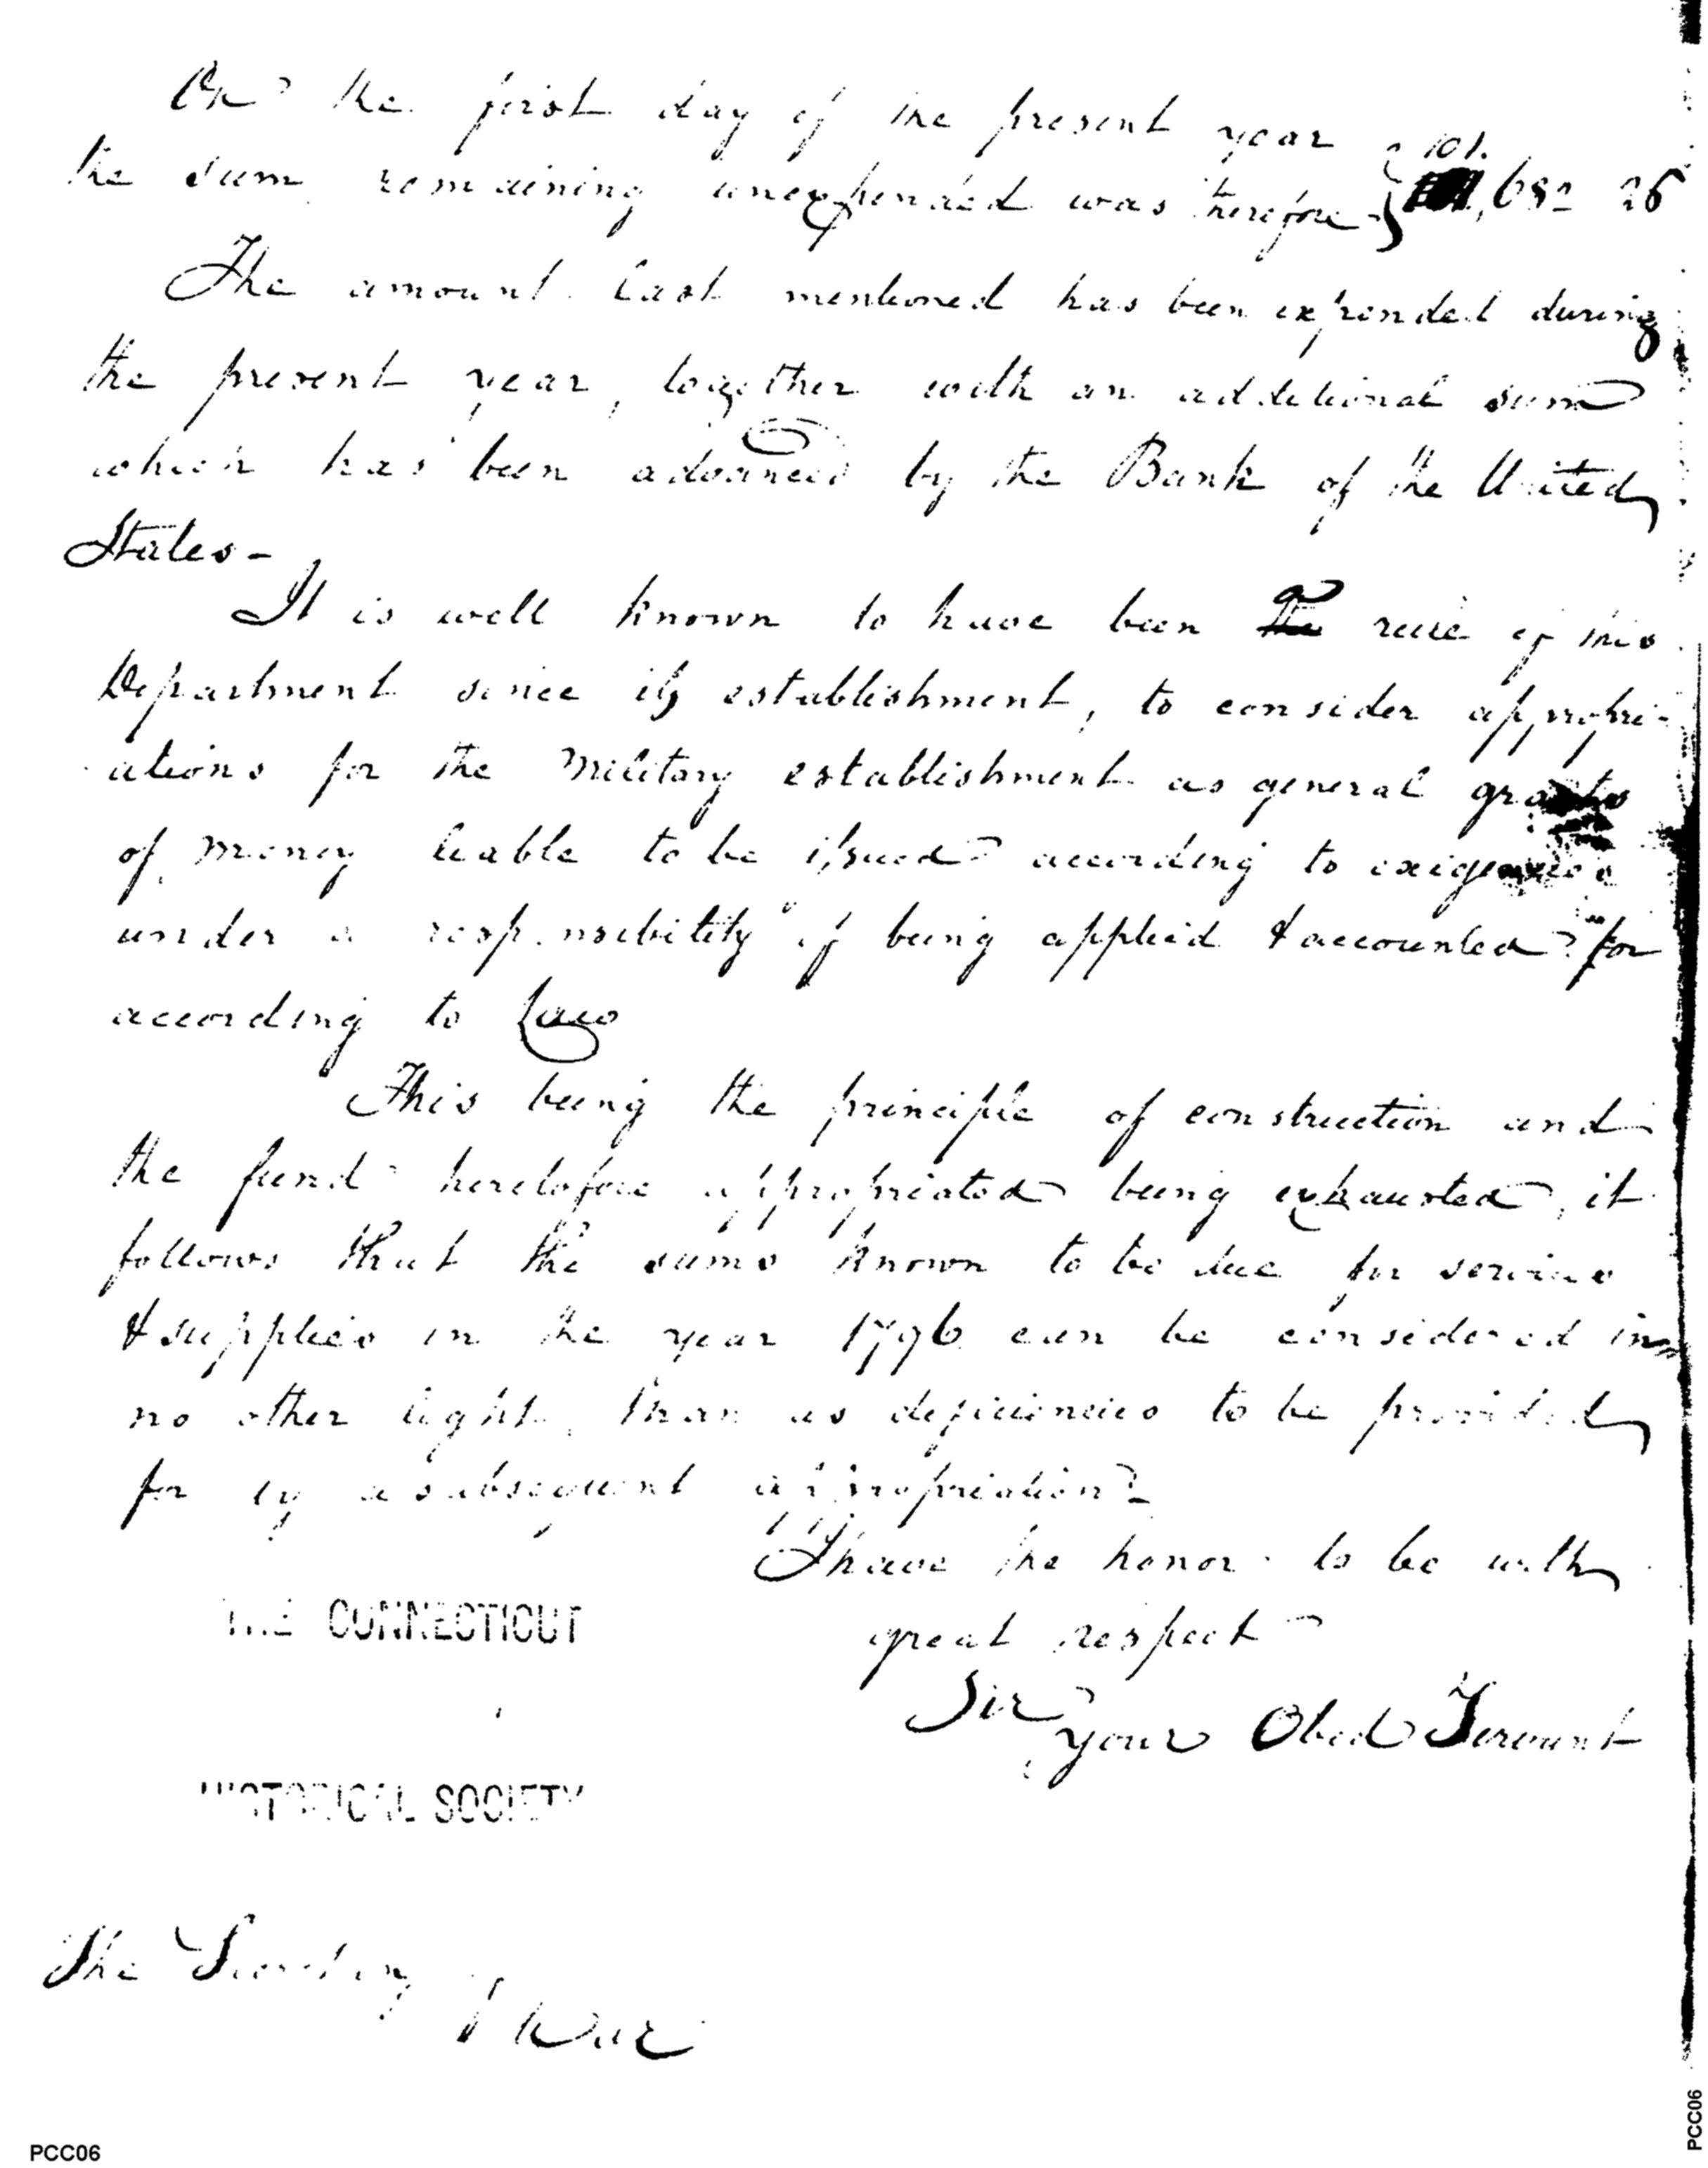 On the first day of the present year
the sum remaining unexpended was therefore } 101, 682 26
The amount last mentioned has been expended during
the present year, together with an additional sum
which has been advanced by the Bank of the United
States -
It is well known to have been the a rule of this
Department since its establishment, to consider appropri-
ations for the Military establishment as general grants
of money liable to be issued according to exigencies
under a responsibility of being applied & accounted for
according to Law
This being the principle of construction and
the fund heretofore appropriated being exhausted, it
follows that the sums known to be due for services
& supplies in the year 1796 can be considered in
no other light, than as deficiencies to be provided
for by a subsequent appropriation -
I have the honor to be with
great respect
Sir
your Obed Servant
THE CONNECTICUT
HISTORICAL SOCIETY
The Secretary
of War
PCC06
PCC06